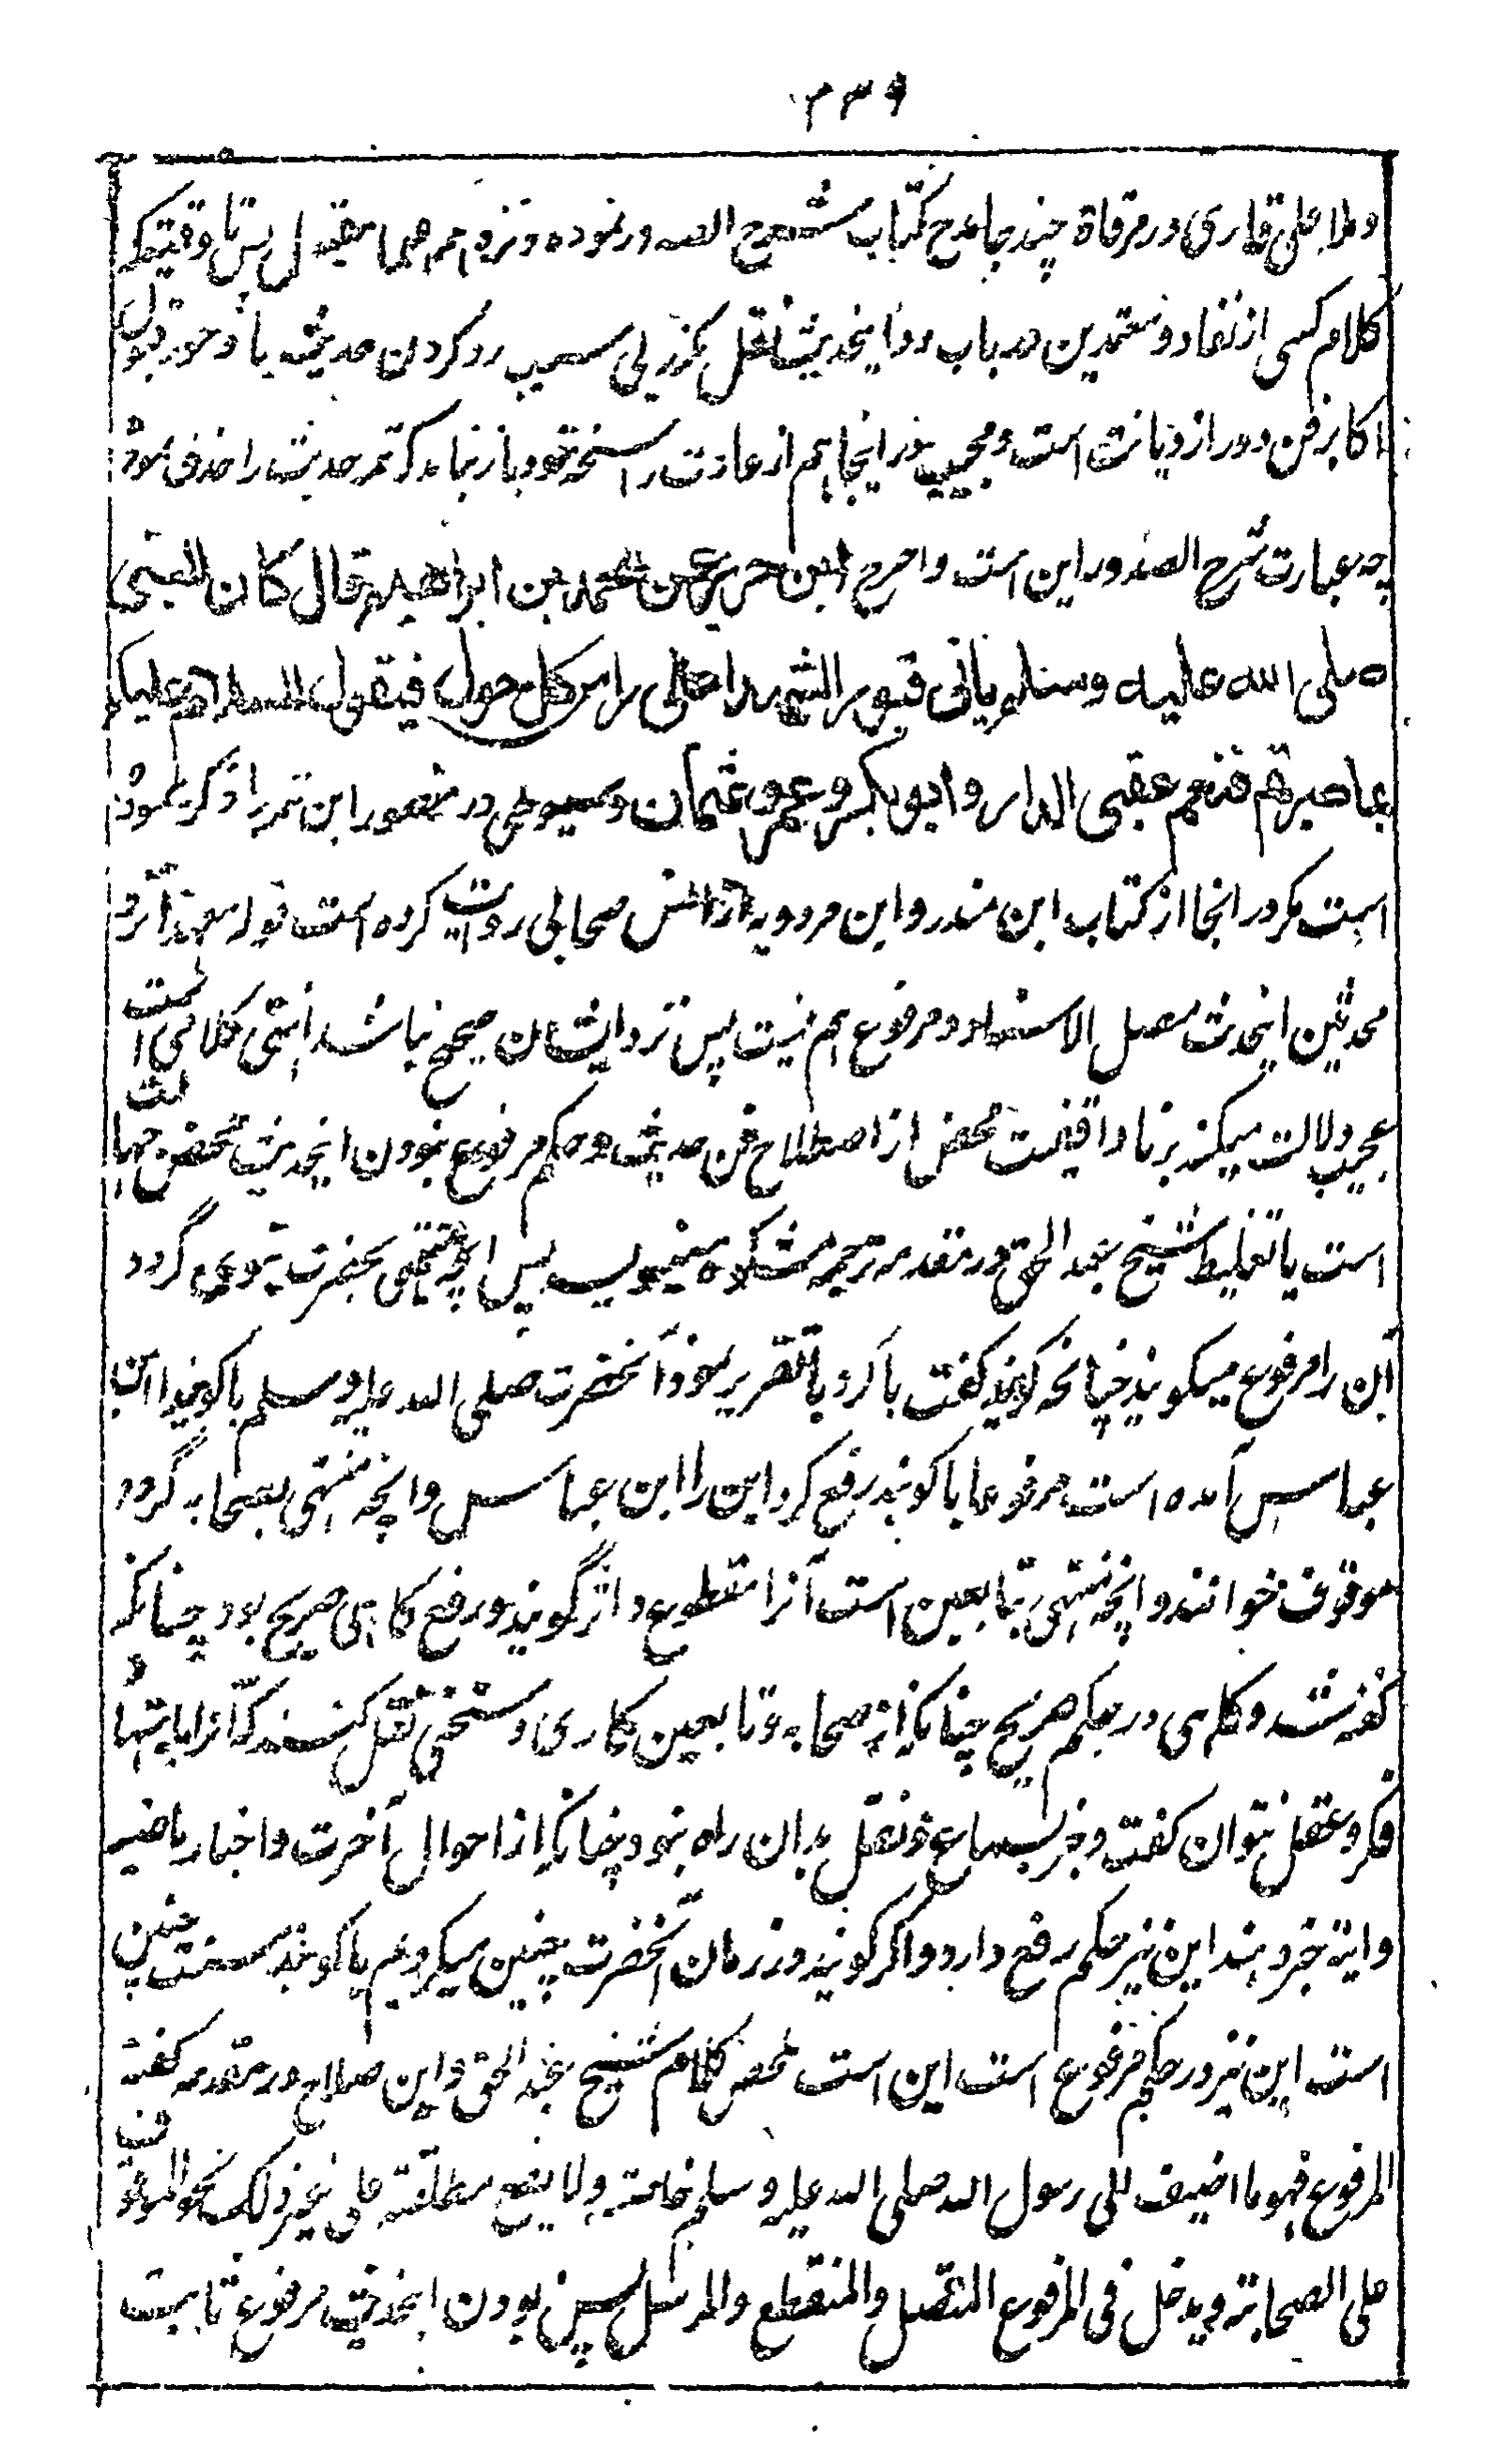 ۳۳۹
وملا علی قاری در مرقاة چند جا مدح کتاب شرح الصدور نموده و نزد هما مقبول پس تا وقتیکه
کلام کسی از نقاد و معتمدین در باب رد اینحدیث نقل نکنند بی سبب رد کردن حدیث با وجود قبول
اکابر فن دور از دیانت است و مجیب در اینجا هم از عادت راسخه خود باز نیامد که تمه حدیث را حذف نمود
چه عبارت شرح الصدور این است واخرج ابن جریر عن محمد بن ابراهیم قال کان النبی
صلی الله علیه وسلم یاتی قبور الشهداء علی راس کل حول فیقول السلام علیکم
بما صبرتم فنعم عقبی الدار وابو بکر وعمر وعثمان وسیوطی در منثور این تمه را ذکر نمود
است مگر در انجا از کتاب ابن منذر وابن مردویه از انس صحابی روایت کرده است قوله مع هذا نزد
محدثین اینحدیث متصل الاسناد و مرفوع هم نیست پس نزد ایشان صحیح نباشد انتهی کلامی است
عجیب دلالت میکند بر ناواقفیت محض از اصطلاح فن حدیث وحکم مرفوع نبودن اینحدیث محض جهالت
است یا تغلیط شیخ عبد الحق در مقدمه ترجمه مشکوة مینویسد پس انچه منتهی بحضرت نبوی گردد
آن را مرفوع میگویند چنانچه گویند گفت یا کرد یا تقریر نمود آنحضرت صلی الله علیه وسلم یا گویند از ابن
عباس آمده است مرفوعا یا گویند رفع کرد این را ابن عباس وانچه منتهی بصحابه گردد
موقوف خوانند وانچه منتهی بتابعین است آنرا مقطوع واثر گویند ورفع گاهی صریح بود چنانکه
گفته شد وگاهی در حکم صریح چنانکه از صحابه وتابعین کاری وسخنی نقل کنند که آنرا باجتهاد
وفکر وعقل نتوان گفت وجز بسماع ونقل بدان راه نبود چنانکه از احوال آخرت واخبار ماضیه
وآتیه خبر دهند این نیز حکم رفع دارد واگر گویند در زمان آنحضرت چنین میکردیم یا گویند سنت چنین
است این نیز در حکم مرفوع است این است ملخص کلام شیخ عبد الحق وابن صلاح در مقدمه گفته
المرفوع فهو ما اضیف الی رسول الله صلی الله علیه وسلم خاصة ولا یقع مطلقه علی غیر ذلک نحو الموقوف
علی الصحابة ویدخل فی المرفوع المتصل والمنقطع والمرسل پس بودن اینحدیث مرفوع ثابت